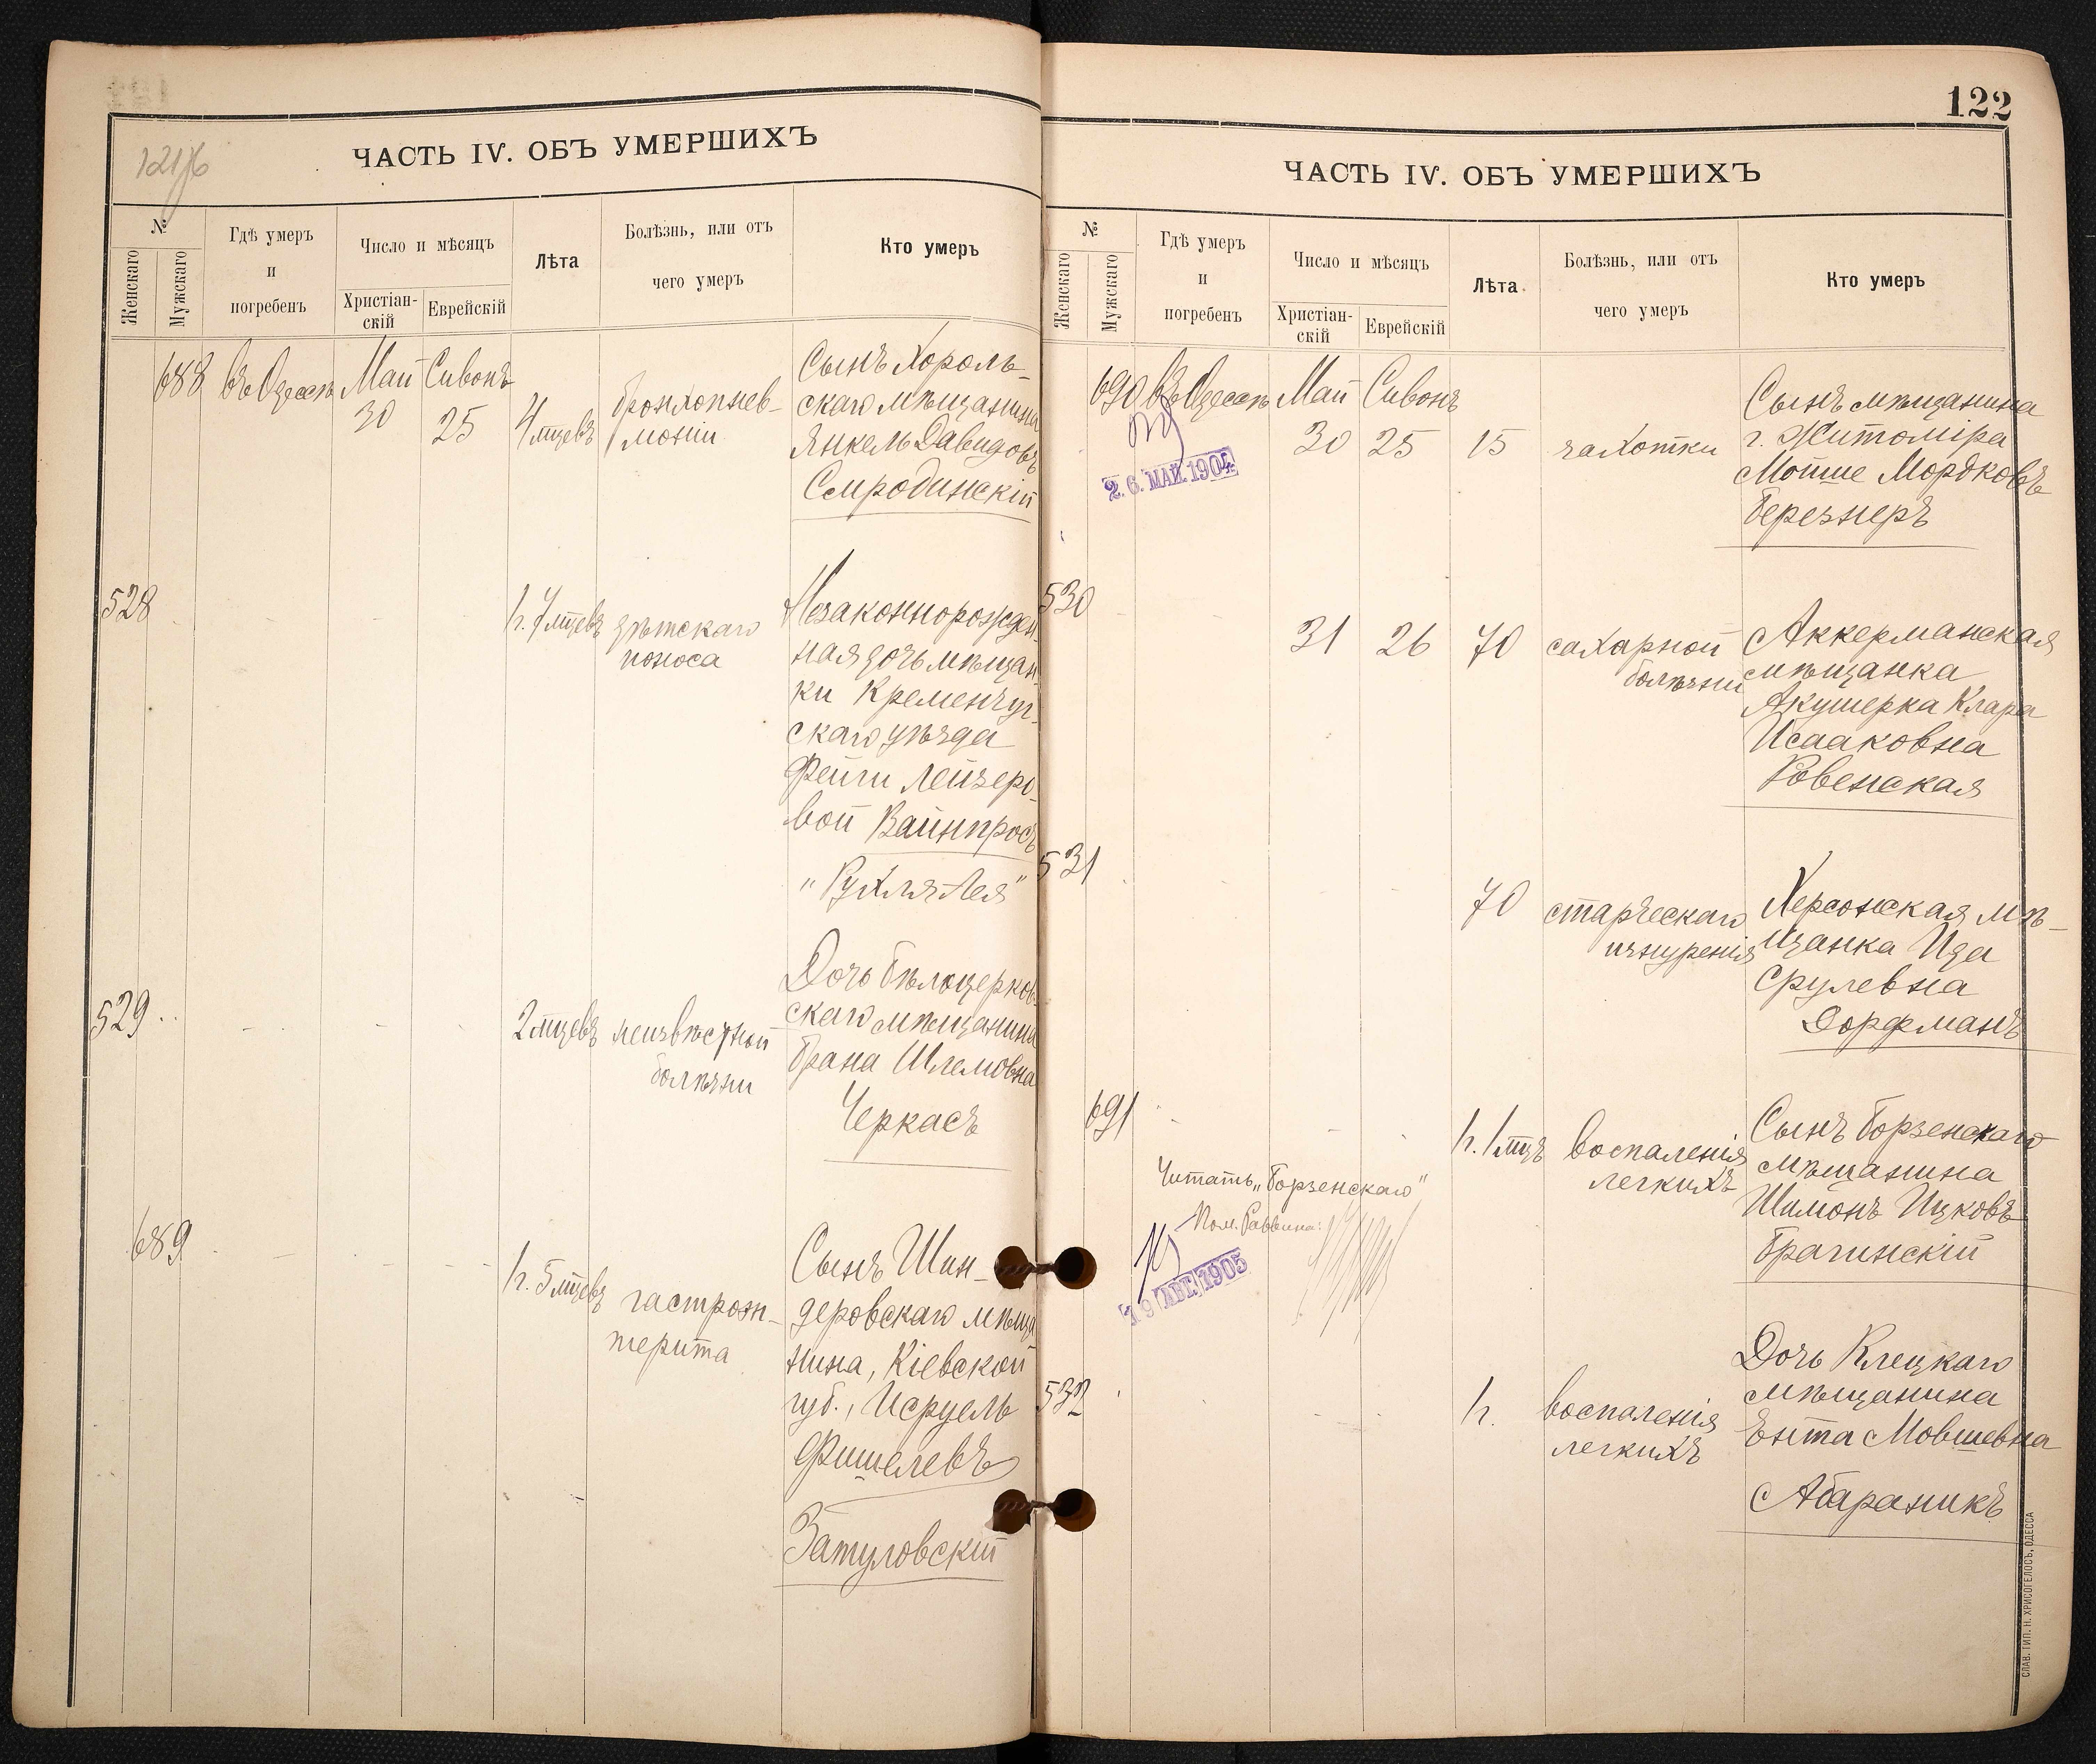 121 об
ЧАСТЬ IV. ОБЪ УМЕРШИХЪ
№
Женскаго
Мужскаго
Гдѣ умеръ
и
погребенъ
Число и мѣсяцъ
Христіан-
скій
Еврейскій
Лѣта
Болѣзнь, или отъ
чего умеръ
Кто умеръ
688
въ Одессѣ
Май
30
Сивонъ
25
4 мцевъ
бронхопнев-
моніи
Сынъ Король-
скаго мѣщанина
Янкель Давидовъ
Смродинскій
528
1 г. 7 мцевъ
дѣтскаго
поноса
Незаконнорожден-
ная дочь мѣщан-
ки Кременчуг-
скаго уѣзда
Фейги Лейзеро-
вой Вайнпросъ
"Рухля-Лея"
529
2 мцевъ
неизвѣстной
болѣзни
Дочь Бѣлоцерков-
скаго мѣщанина
Брана Шлемовна
Черкасъ
689
1 г. 5 мцевъ
гастроэн-
терита
Сынъ Шен-
деровскаго мѣща
нина, Кіевской
губ., Исруель
Фишелевъ
Затуловскій
122
ЧАСТЬ IV. ОБЪ УМЕРШИХЪ
№
Женскаго
Мужскаго
Гдѣ умеръ
и
погребенъ
Число и мѣсяцъ
Христіан-
скій
Еврейскій
Лѣта
Болѣзнь, или отъ
чего умеръ
Кто умеръ
690
въ Одессѣ
Май
30
Сивонъ
25
15
чахотки
Сынъ мѣщанина
г. Житоміра
Мотше Мордковъ
Березнеръ
26 МАЙ 1904
530
31
26
70
сахарной
болѣзни
Аккерманская
мѣщанка
Акушерка Клара
Исааковна
Ровенская
531
70
старческаго
изнуренія
Херсонская мѣ-
щанка Ида
Срулевна
Дорфманъ
691
1 г. 1 мцъ
воспаленія
легкихъ
Сынъ Борзенскаго
мѣщанина
Шимонъ Ицковъ
Брагинскій
Читать "Борзенскаго"
Пом. Раввина:
19 АВГ. 1905
532
1 г.
воспаленія
легкихъ
Дочь Клецкаго
мѣщанина
Ента Мовшевна
Абараникъ
СЛАВ. ТИП. Н. ХРИСОГЕЛОСЪ, ОДЕССА